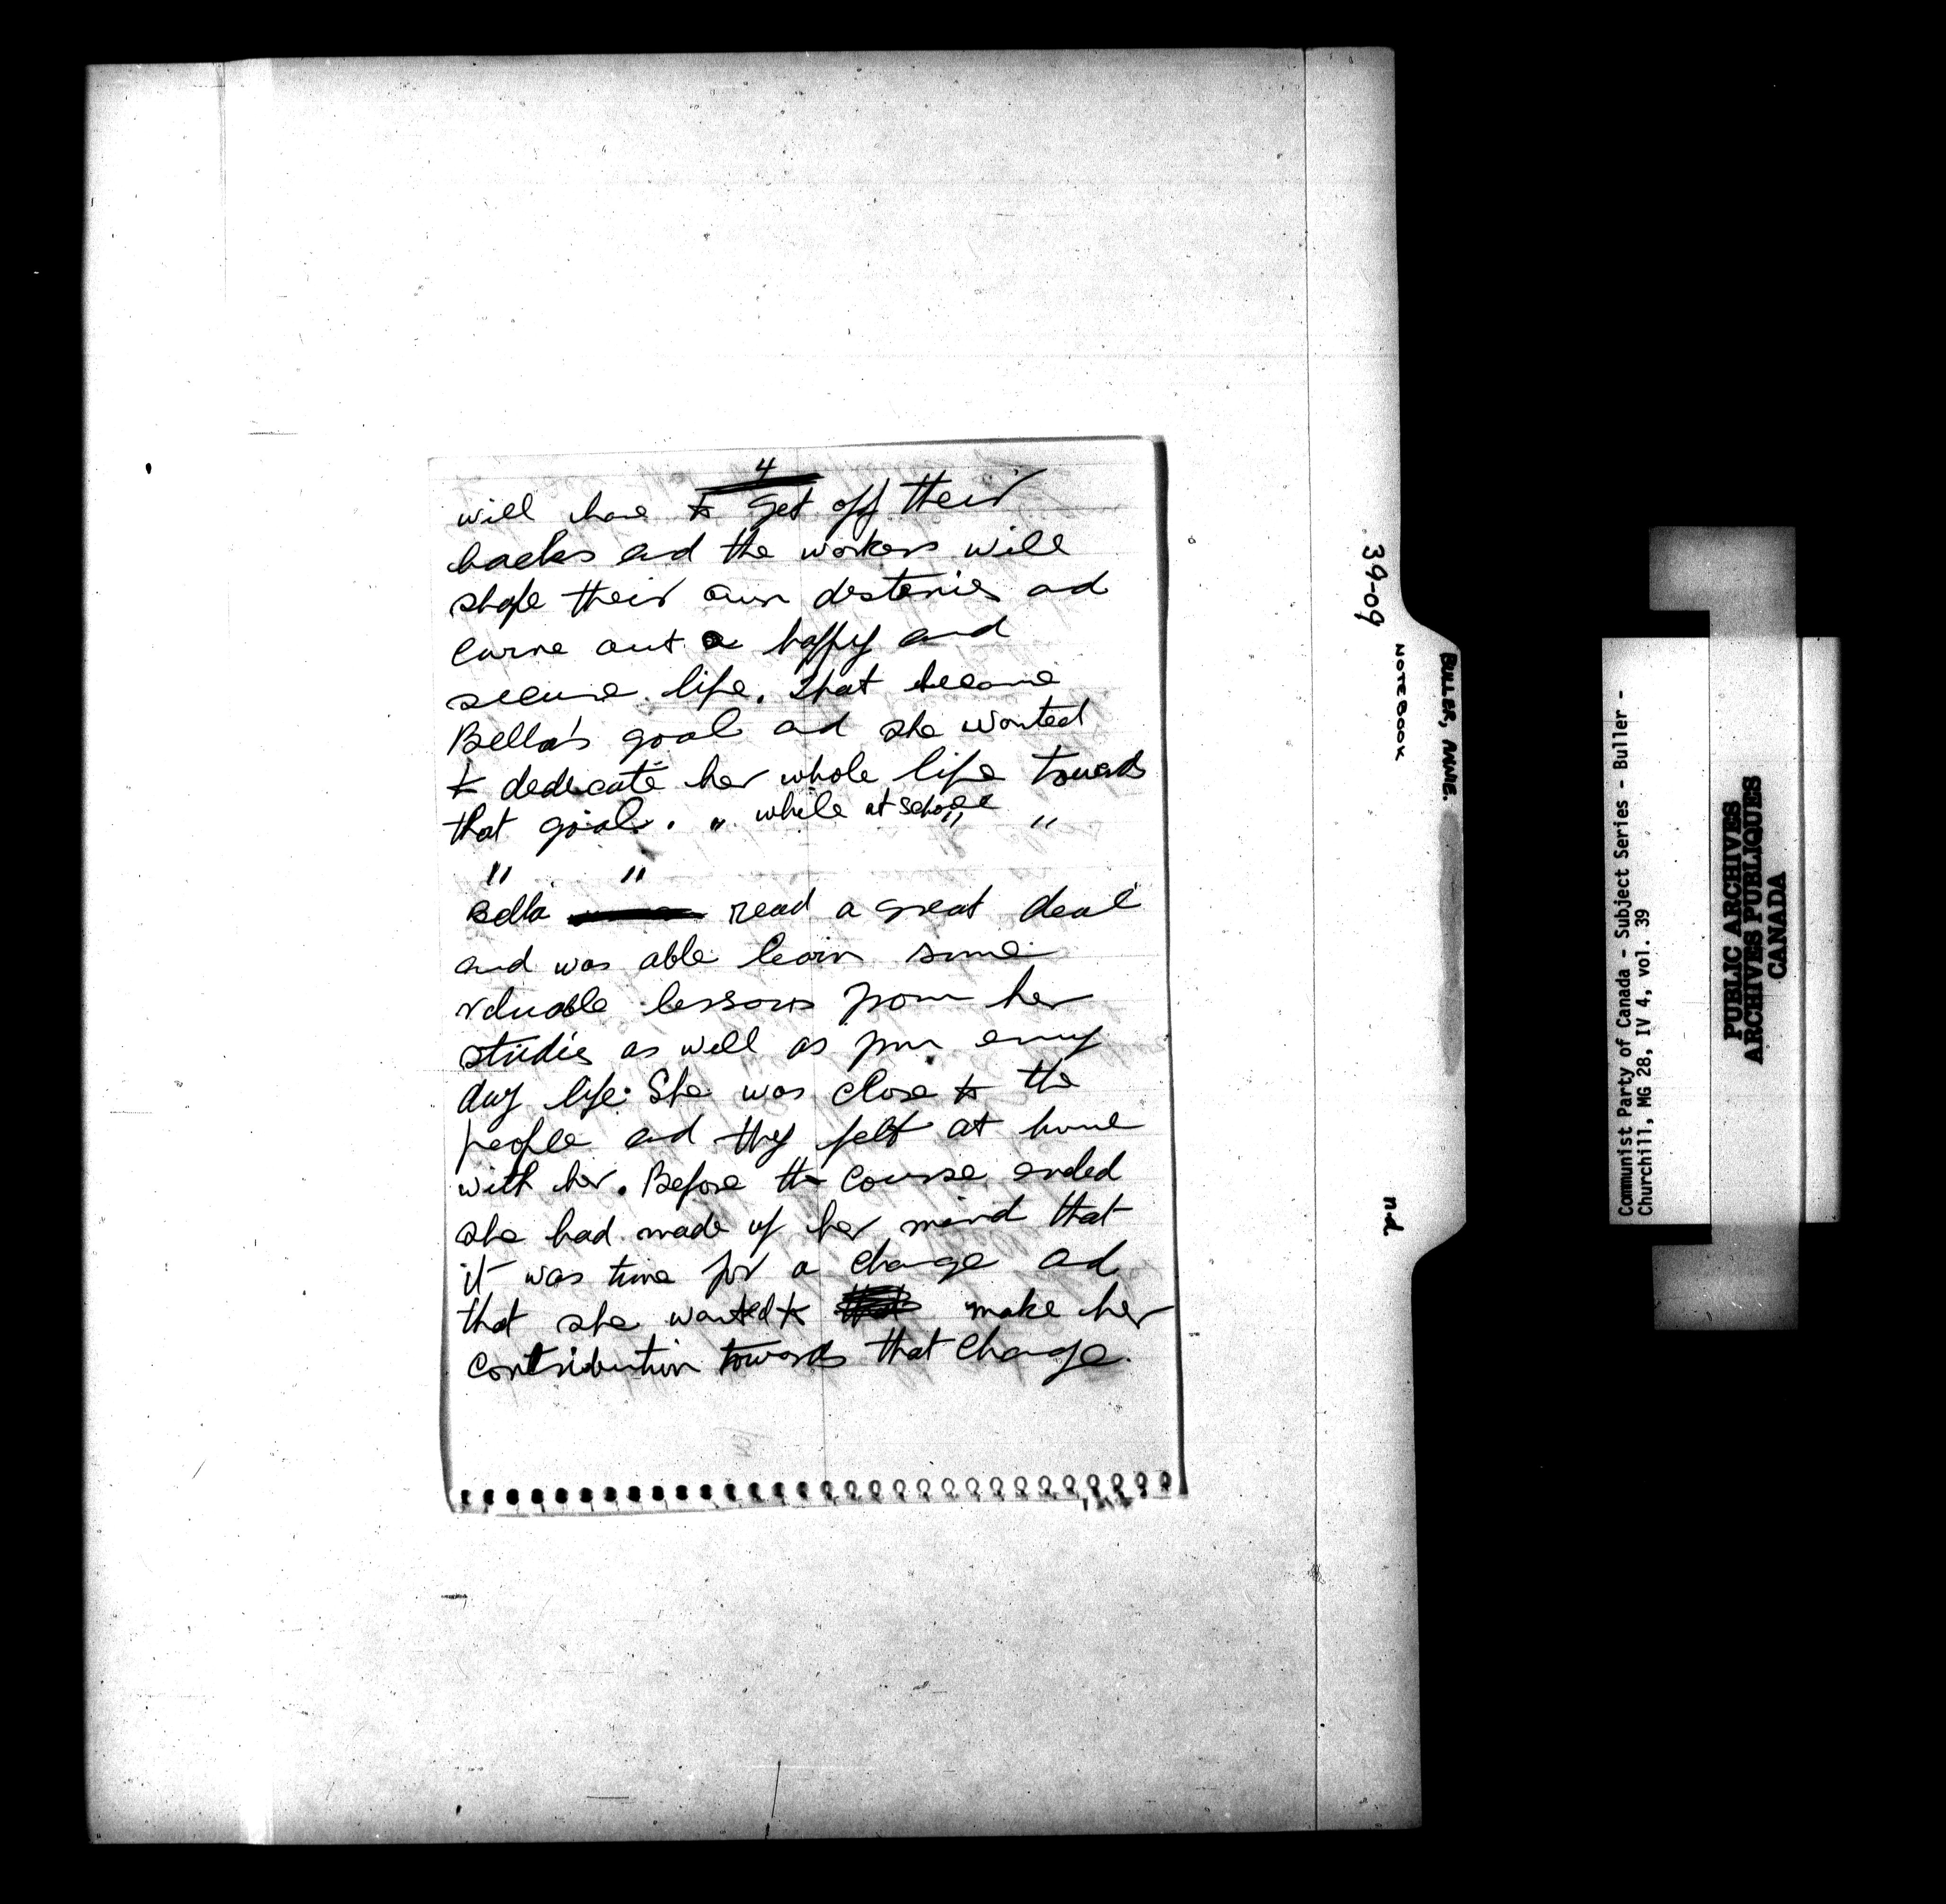 4
will have to get off their
backs and the workers will
shape their own destenies and
carve out a happy and
secure life. That became
Bella's goal and she wanted
to dedecate her whole life towards
that goal. " while at school " "
" "
Bella read a great deal
and was able learn some
valuable lessons from her
studies as well as from every
day life. She was close to the
people and they felt at home
with her. Before the course ended
she had made up her mind that
it was time for a change and
that she wanted to that make her
contribution towards that change.
39-09
NOTEBOOK
BULLER, ANNIE.
n.d.
Communist Party of Canada - Subject Series - Buller -
Churchill, MG 28, IV 4, vol. 39
PUBLIC ARCHIVES
ARCHIVES PUBLIQUES
CANADA